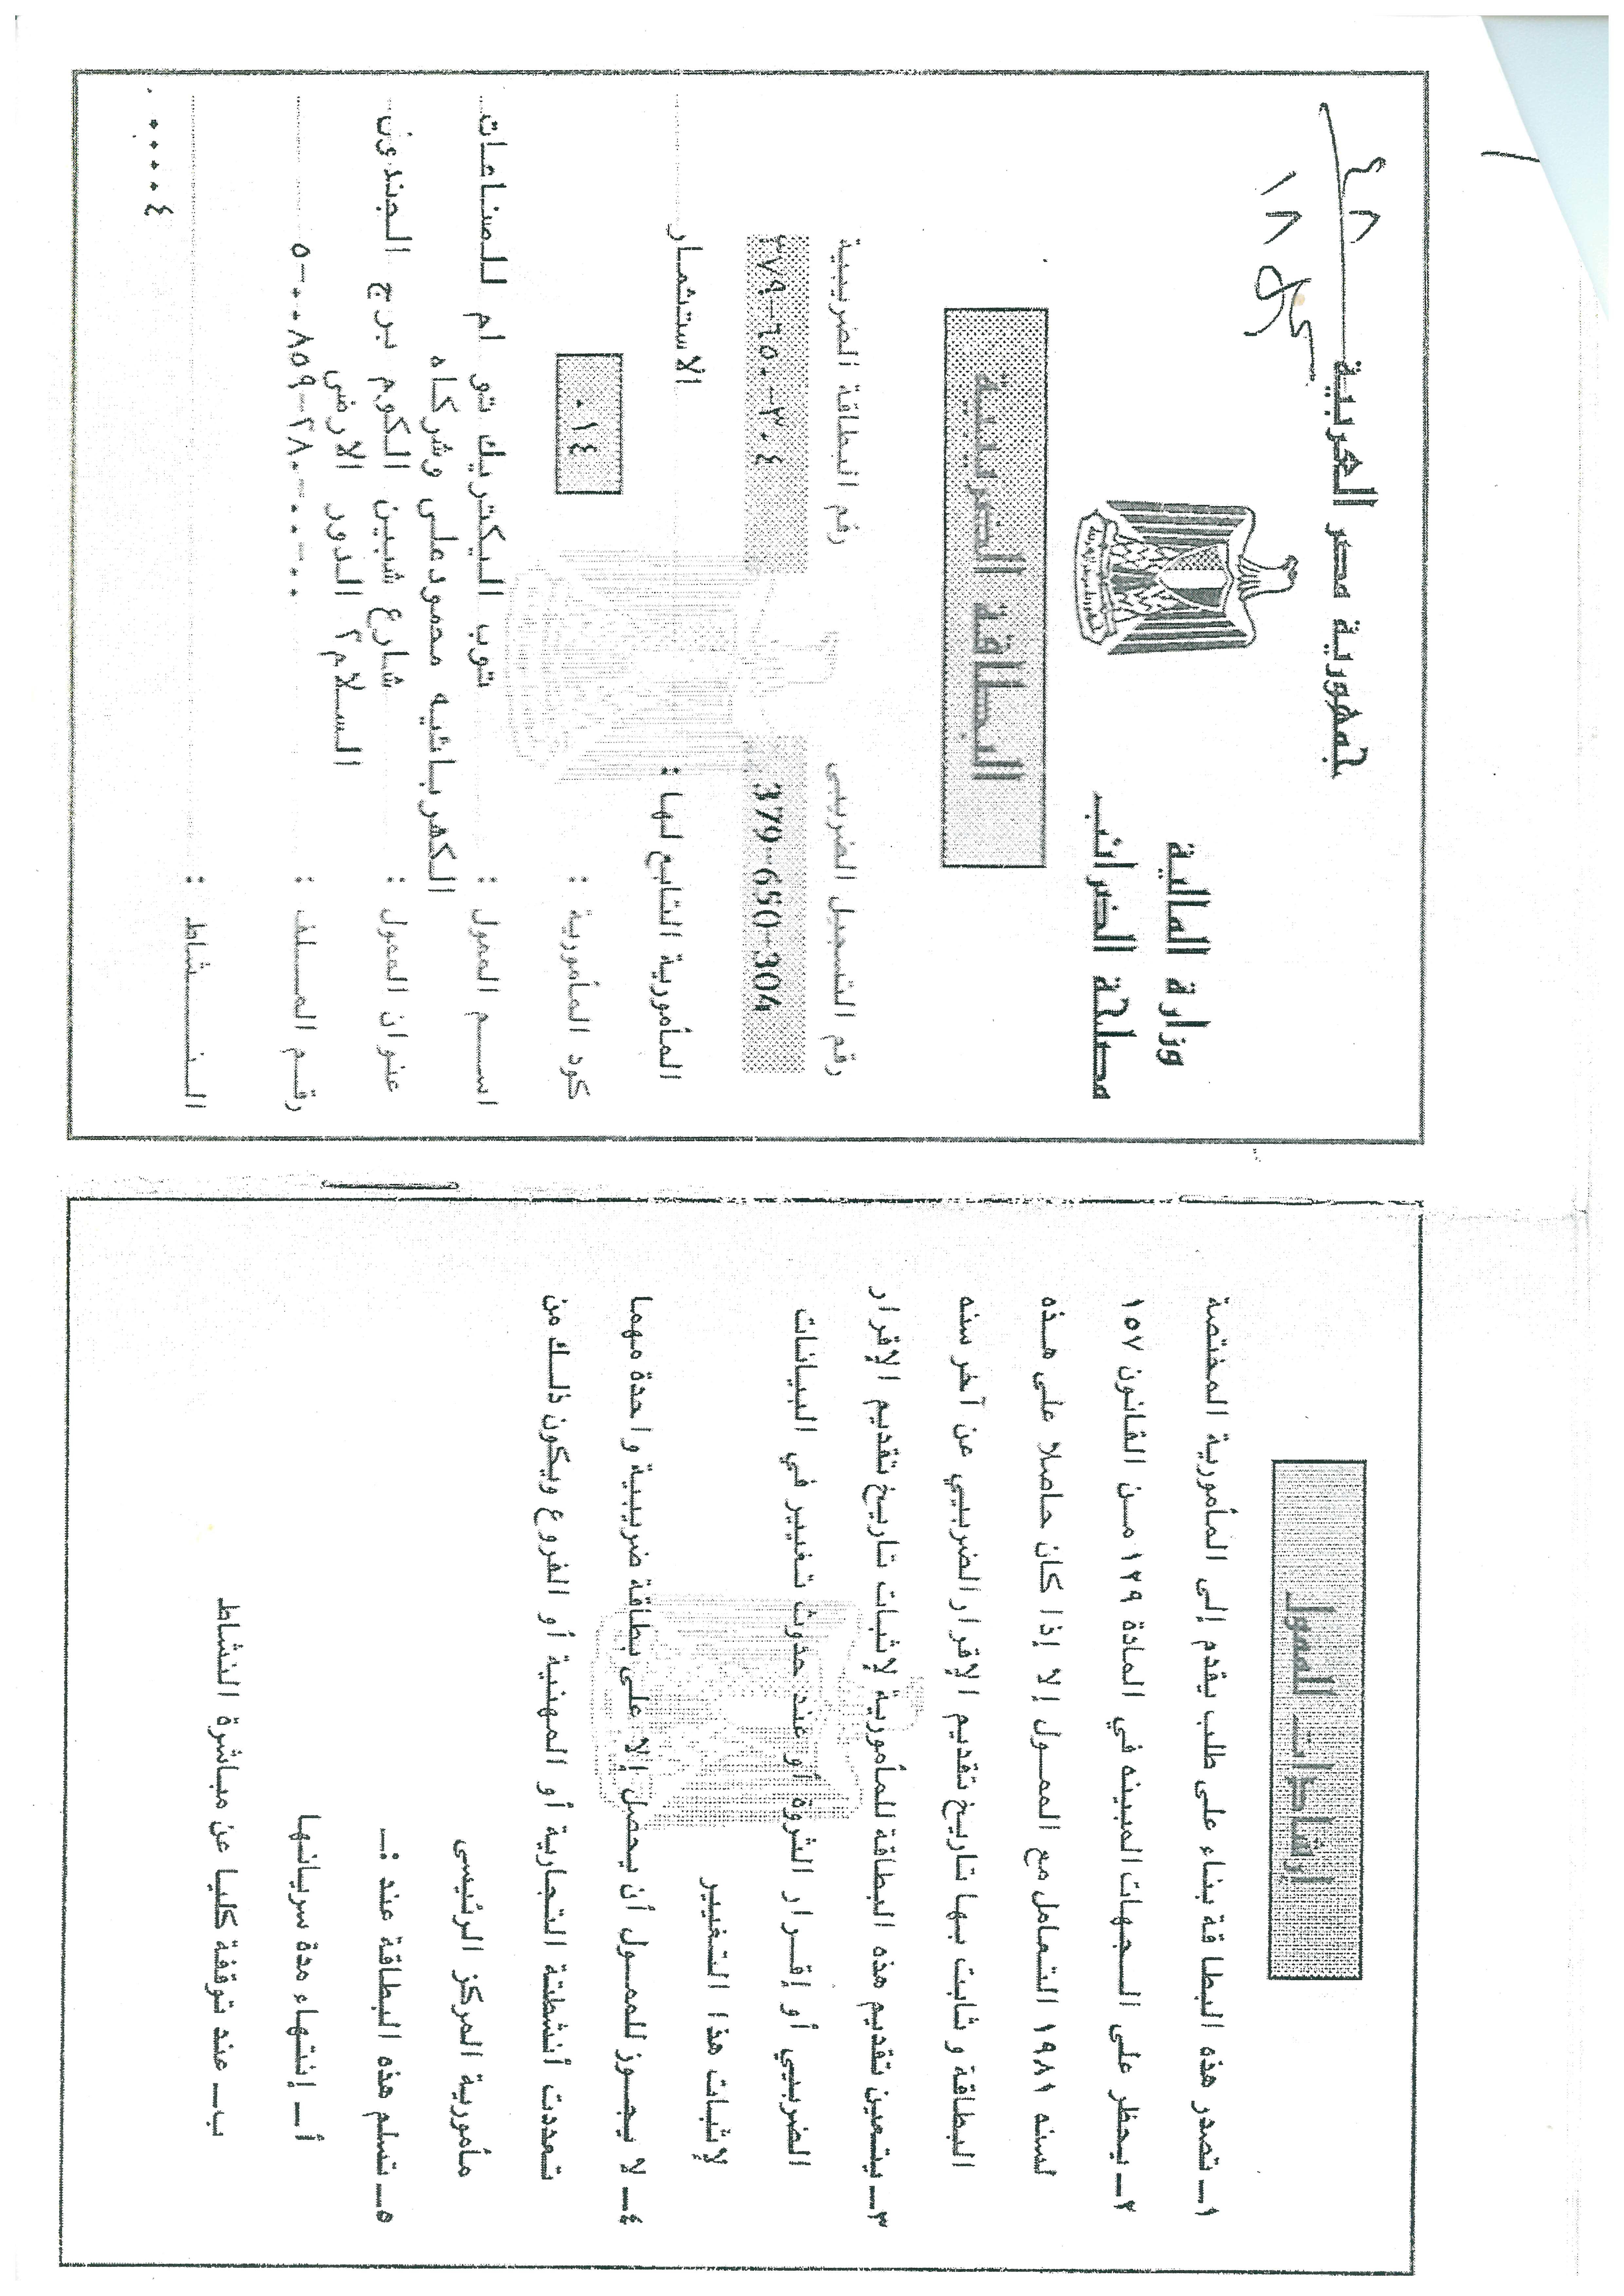 جمهورية مصر العربية
وزارة المالية
مصلحة الضرائب
البطاقة الضريبية
رقم التسجيل الضريبى
رقم البطاقة الضريبية
379-650-304
٣٧٩-٦٥٠-٣٠٤
المأمورية التابع لها : الاستثمار
كود المأمورية : ٠١٤
اسم الممول : توب اليكتريك تو ام للصناعات
الكهربائيه محمودعلى وشركاه
عنوان الممول : شارع شبين الكوم برج الجندى
السلام٢ الدور الارضى
رقم الملف : ٥-٠٠٨٥٩-٢٨٠-٠٠-٠٠
النشاط :
إرشادات الممول
١ـ تصدر هذه البطاقة بناء على طلب يقدم إلى المأمورية المختصة
٢ـ يحظر على الجهات المبينه في المادة ١٢٩ من القانون ١٥٧
لسنه ١٩٨١ التعامل مع الممول إلا إذا كان حاصلا على هذه
البطاقة وثابت بها تاريخ تقديم الإقرار الضريبي عن آخر سنه
٣ـ يتعين تقديم هذه البطاقة للمأمورية لإثبات تاريخ تقديم الإقرار
الضريبي أو إقرار الثروة أو عند حدوث تغيير في البيانات
لإثبات هذا التغيير
٤ـ لا يجوز للممول أن يحصل إلا على بطاقة ضريبية واحدة مهما
تعددت أنشطتة التجارية أو المهنية أو الفروع ويكون ذلك من
مأمورية المركز الرئيسى
٥ـ تسلم هذه البطاقة عند :ـ
أ ـ إنتهاء مدة سريانها
ب ـ عند توقفة كليا عن مباشرة النشاط